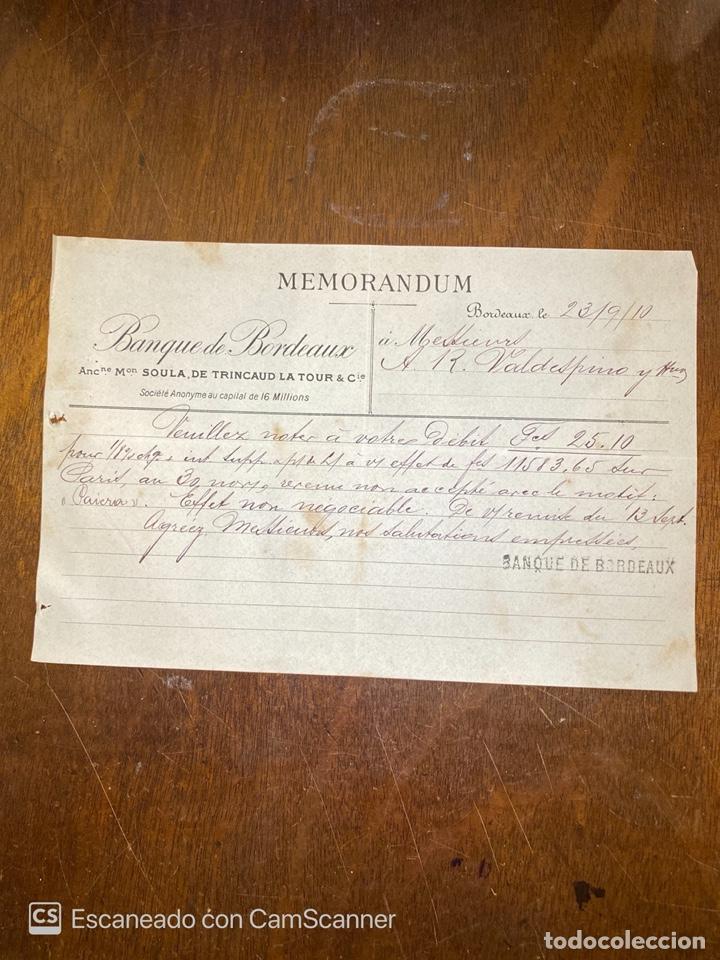 MEMORANDUM
Bordeaux, le 23/9/10
Banque de Bordeaux
Ancne Mon SOULA, DE TRINCAUD LA TOUR & Cie
Société Anonyme au capital de 16 Millions
à Messieurs
A. R. Valdespino y Hno
Veuillez noter à votre débit Fcs 25.10
pour 1/8% chge, int supp à v/ effet de fcs 11583,65 sur
Paris, au 30 nov, revenu non accepté avec le motif:
"Paiera". Effet non négociable. De v/ remise du 13 Sept.
Agréez, Messieurs, nos salutations empressées,
BANQUE DE BORDEAUX
CS Escaneado con CamScanner
todocoleccion